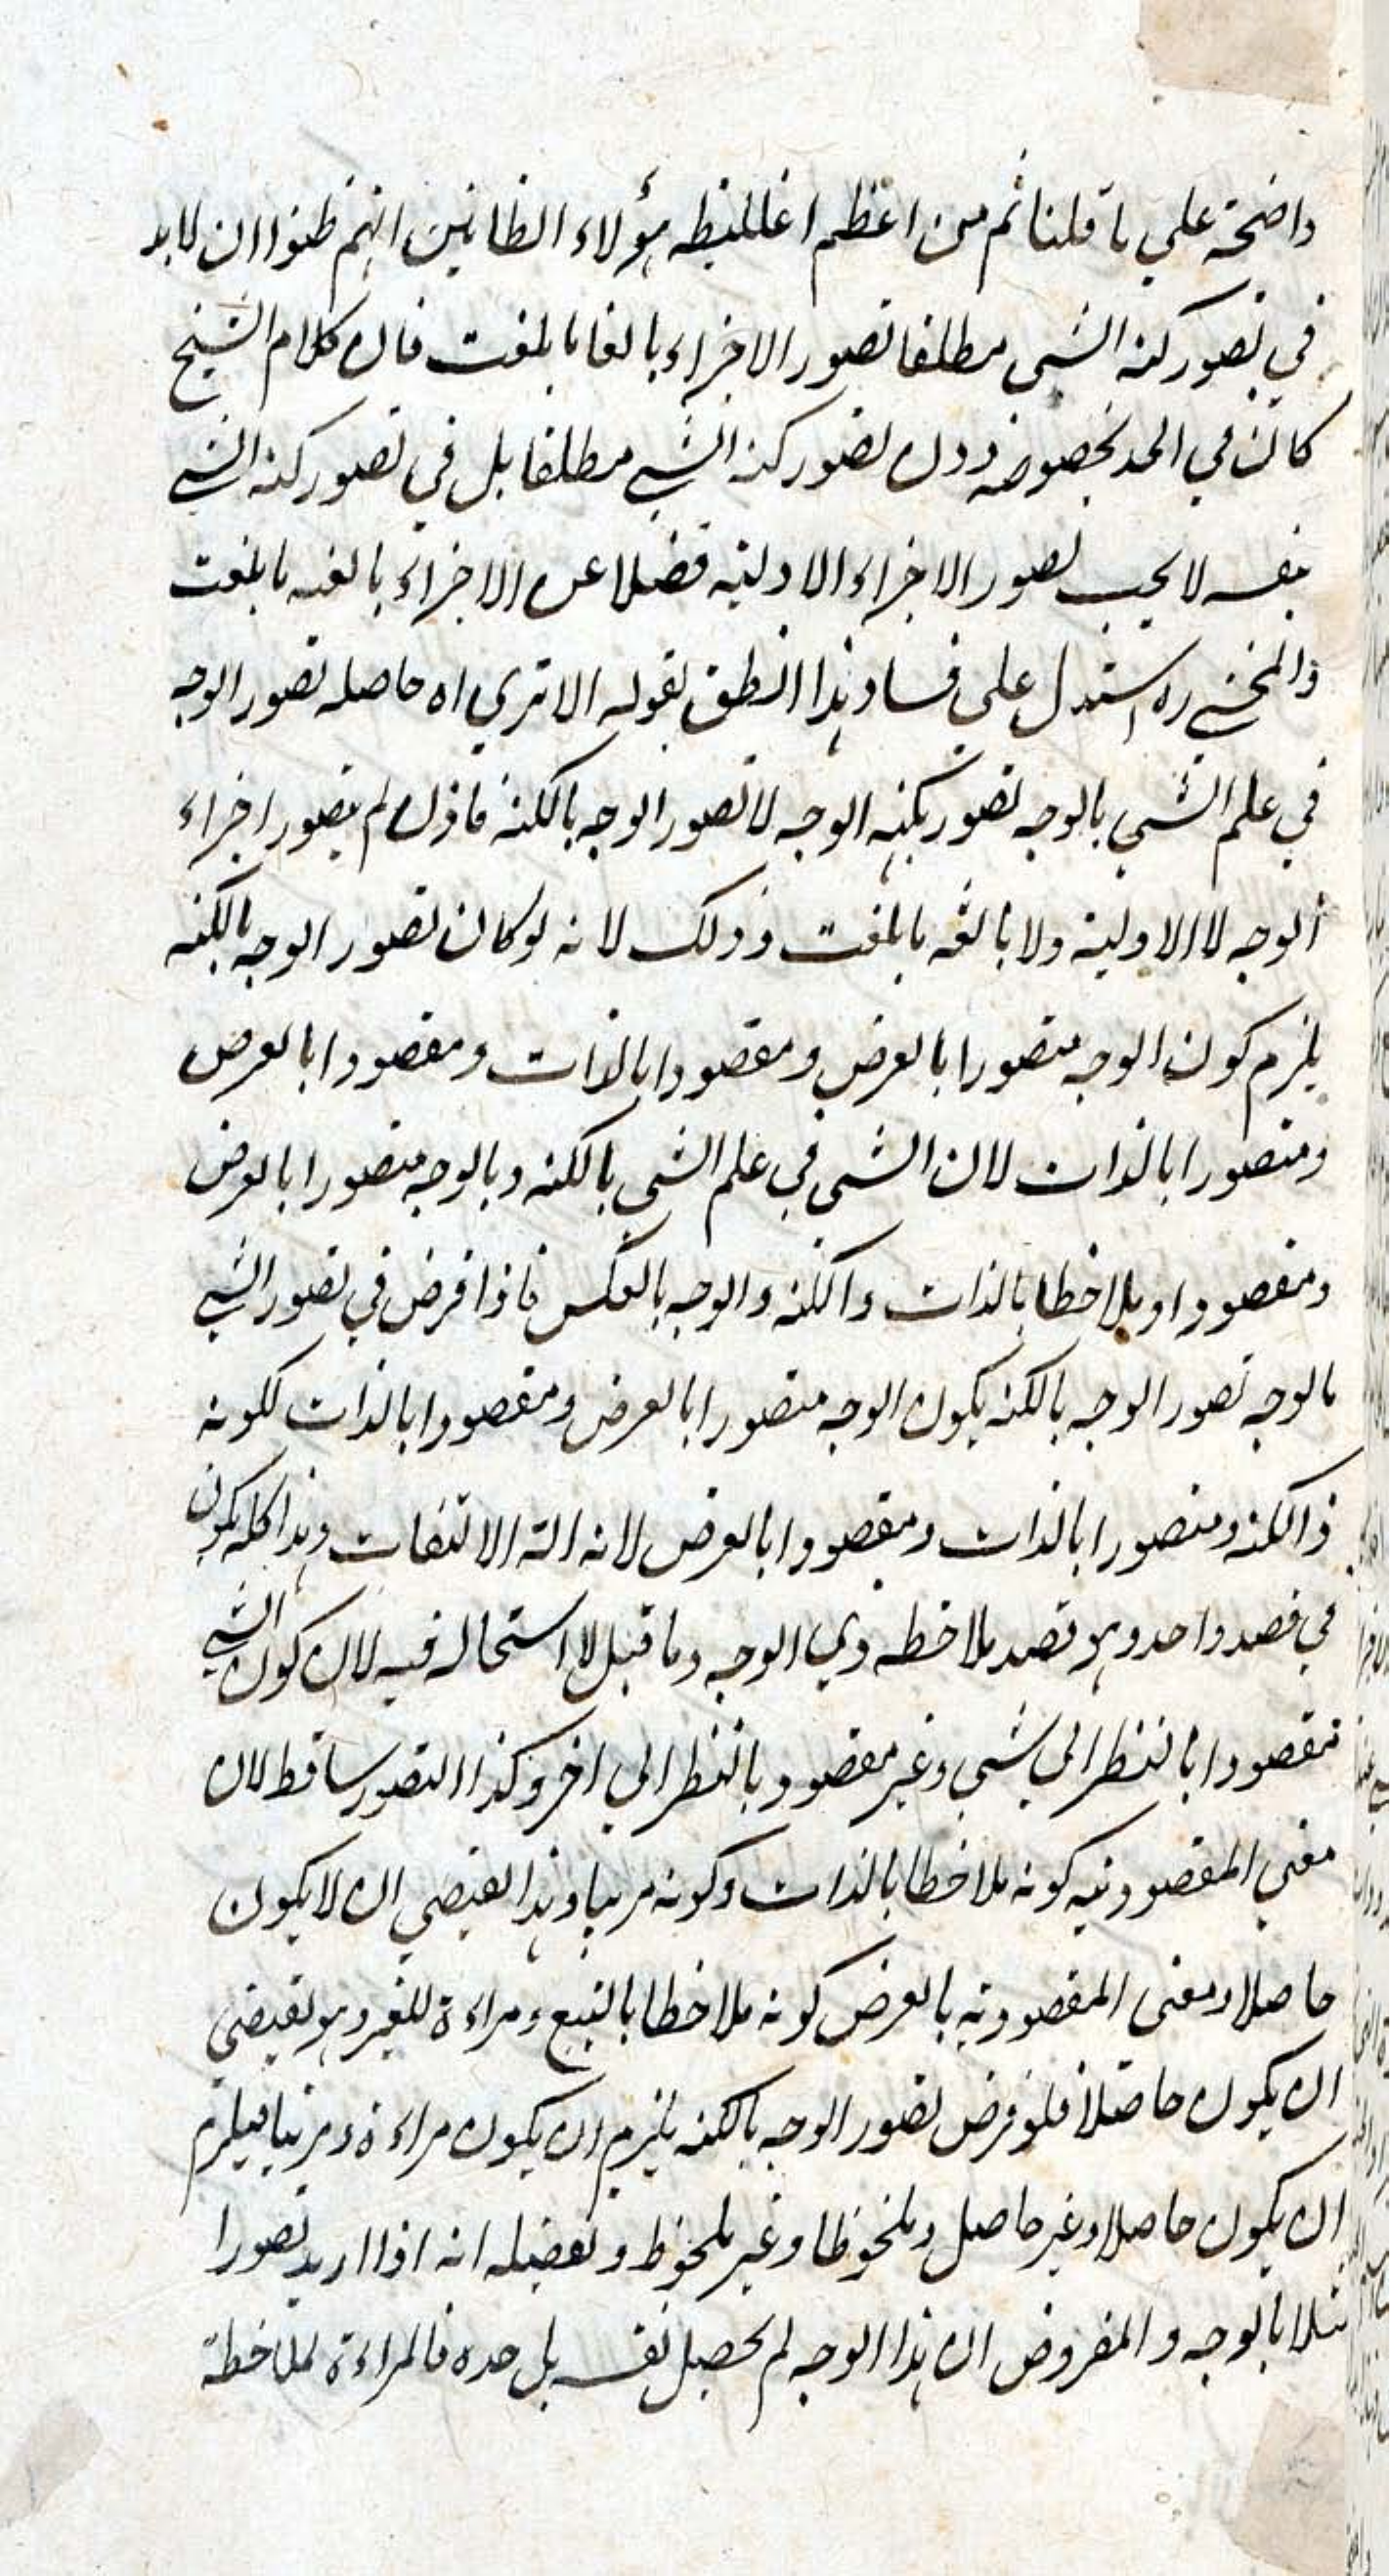 واضحة علي ما قلنا ثم من اعظم اغاليطه هؤلاء الظانين انهم ظنوا ان لا بد
في تصور كنه الشي مطلقا تصور الاجزاء بالغا ما بلغت فان كلام الشيخ
كان في الحد بخصوصه دون تصور كنه الشي مطلقا بل في تصور كنه الشي
بنفسه لا يجب تصور الاجزاء الاولية فضلا عن الاجزاء بالغه ما بلغت
والمحشي ره استدل علي فساد هذا الظن بقوله الا تري اه حاصله تصور الوجه
في علم الشي بالوجه تصور بكنه الوجه لا تصور الوجه بالكنه فاذن لم يتصور اجزاء
الوجه لا الاولية ولا بالغه ما بلغت وذلك لانه لو كان تصور الوجه بالكنه
يلزم كون الوجه متصورا بالعرض ومقصودا بالذات ومقصودا بالعرض
ومتصورا بالذات لان الشي في علم الشي بالكنه وبالوجه متصورا بالعرض
ومقصودا وملاحظا بالذات والكنه والوجه بالعكس فاذا فرض في تصور الشي
بالوجه تصور الوجه بالكنه يكون الوجه متصورا بالعرض ومقصودا بالذات لكونه
ذا الكنه ومتصورا بالذات ومقصودا بالعرض لانه الة الالتفات وهذا كله يكون
في قصد واحد وهو قصد ملاحظه ذي الوجه وما قيل لا استحاله فيه لان كون الشي
مقصودا بالنظر الي شي وغير مقصود بالنظر الي اخر وكذا التصور ساقط لان
معني المقصودية كونه ملاحظا بالذات وكونه مرئيا وهذا يقتضي ان لا يكون
حاصلا ومعنى المقصودية بالعرض كونه ملاحظا بالتبع ومراءة للغير وهو يقتضي
ان يكون حاصلا فلو فرض تصور الوجه بالكنه يلزم ان يكون مراءة ومرئيا فيلزم
ان يكون حاصلا وغير حاصل وملحوظا وغير ملحوظ وتفصيله انه اذا اريد تصور ا
مثلا بالوجه والمفروض ان هذا الوجه لم يحصل نفسه بل حده فالمراءة لملاحظة